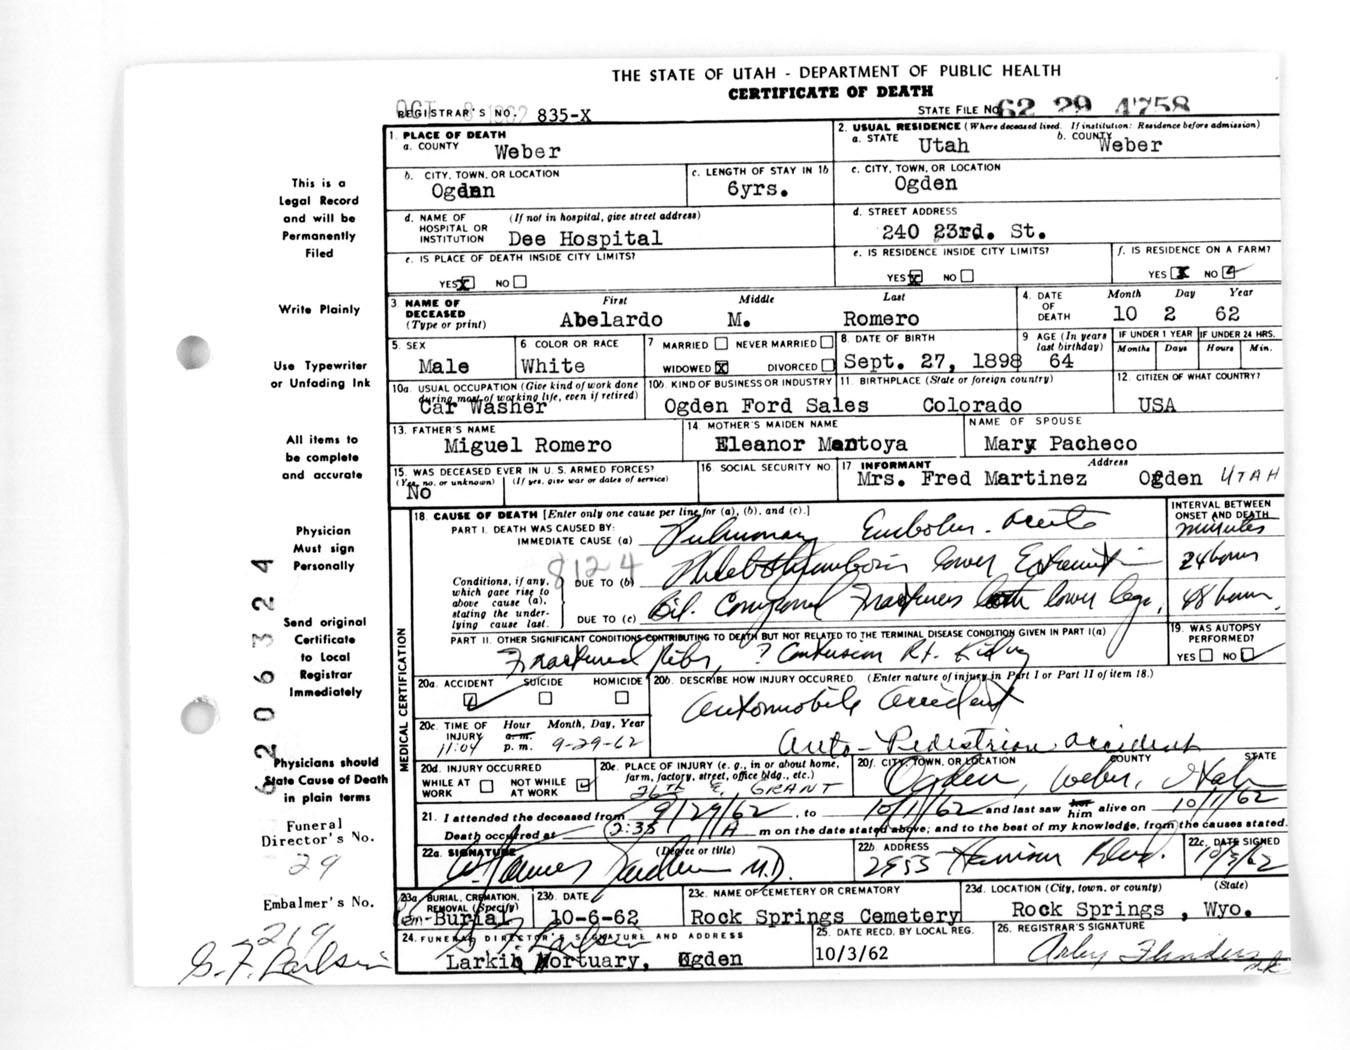 THE STATE OF UTAH - DEPARTMENT OF PUBLIC HEALTH
CERTIFICATE OF DEATH
REGISTRAR'S NO. 835-X
STATE FILE NO. 62 29 4758
1. PLACE OF DEATH
a. COUNTY Weber
2. USUAL RESIDENCE (Where deceased lived. If institution: Residence before admission)
a. STATE Utah b. COUNTY Weber
b. CITY, TOWN, OR LOCATION
Ogden
c. LENGTH OF STAY IN 1b
6yrs.
c. CITY, TOWN, OR LOCATION
Ogden
d. NAME OF HOSPITAL OR INSTITUTION (If not in hospital, give street address)
Dee Hospital
d. STREET ADDRESS
240 23rd. St.
e. IS PLACE OF DEATH INSIDE CITY LIMITS?
YES X NO
e. IS RESIDENCE INSIDE CITY LIMITS?
YES X NO
f. IS RESIDENCE ON A FARM?
YES X NO
3 NAME OF DECEASED (Type or print)
First Middle Last
Abelardo M. Romero
4. DATE OF DEATH
Month Day Year
10 2 62
5. SEX
Male
6 COLOR OR RACE
White
7 MARRIED NEVER MARRIED
WIDOWED X DIVORCED
8. DATE OF BIRTH
Sept. 27, 1898
9 AGE (In years last birthday)
64
IF UNDER 1 YEAR
Months Days
IF UNDER 24 HRS.
Hours Min.
10a. USUAL OCCUPATION (Give kind of work done during most of working life, even if retired)
Car Washer
10b. KIND OF BUSINESS OR INDUSTRY
Ogden Ford Sales
11. BIRTHPLACE (State or foreign country)
Colorado
12. CITIZEN OF WHAT COUNTRY?
USA
13. FATHER'S NAME
Miguel Romero
14. MOTHER'S MAIDEN NAME
Eleanor Montoya
NAME OF SPOUSE
Mary Pacheco
15. WAS DECEASED EVER IN U. S. ARMED FORCES?
(Yes, no, or unknown) (If yes, give war or dates of service)
No
16. SOCIAL SECURITY NO.
17 INFORMANT Address
Mrs. Fred Martinez Ogden UTAH
MEDICAL CERTIFICATION
18. CAUSE OF DEATH [Enter only one cause per line for (a), (b), and (c).]
INTERVAL BETWEEN ONSET AND DEATH
PART I. DEATH WAS CAUSED BY:
IMMEDIATE CAUSE (a) Pulmonary Embolus - acute minutes
8124
Conditions, if any, which gave rise to above cause (a), stating the underlying cause last.
DUE TO (b) Phlebothrombosis lower Extremities 24 hours
DUE TO (c) Bil. Compound Fractures both lower legs, 48 hours.
PART II. OTHER SIGNIFICANT CONDITIONS CONTRIBUTING TO DEATH BUT NOT RELATED TO THE TERMINAL DISEASE CONDITION GIVEN IN PART I(a)
Fractured Ribs, ? Contusion Rt. Kidney
19. WAS AUTOPSY PERFORMED?
YES NO
20a. ACCIDENT SUICIDE HOMICIDE
20b. DESCRIBE HOW INJURY OCCURRED. (Enter nature of injury in Part I or Part II of item 18.)
Automobile accident
Auto-Pedestrian accident
20c. TIME OF INJURY Hour Month, Day, Year
a. m.
11:04 p. m. 9-29-62
20d. INJURY OCCURRED
WHILE AT WORK NOT WHILE AT WORK
20e. PLACE OF INJURY (e. g., in or about home, farm, factory, street, office bldg., etc.)
26TH & GRANT
20f. CITY, TOWN, OR LOCATION COUNTY STATE
Ogden, Weber, Utah
21. I attended the deceased from 9/29/62, to 10/1/62 and last saw her him alive on 10/1/62
Death occurred at 2:35 A m on the date stated above; and to the best of my knowledge, from the causes stated.
22a. SIGNATURE (Degree or title)
M.D.
22b. ADDRESS
2955 Harrison Blvd.
22c. DATE SIGNED
10/3/62
23a. BURIAL, CREMATION, REMOVAL (Specify)
Em-Burial
23b. DATE
10-6-62
23c. NAME OF CEMETERY OR CREMATORY
Rock Springs Cemetery
23d. LOCATION (City, town, or county) (State)
Rock Springs , Wyo.
24. FUNERAL DIRECTOR'S SIGNATURE AND ADDRESS
Larkin Mortuary, Ogden
25. DATE RECD. BY LOCAL REG.
10/3/62
26. REGISTRAR'S SIGNATURE
This is a
Legal Record
and will be
Permanently
Filed
Write Plainly
Use Typewriter
or Unfading Ink
All items to
be complete
and accurate
Physician
Must sign
Personally
Send original
Certificate
to Local
Registrar
Immediately
Physicians should
State Cause of Death
in plain terms
Funeral
Director's No.
29
Embalmer's No.
219
62 206324